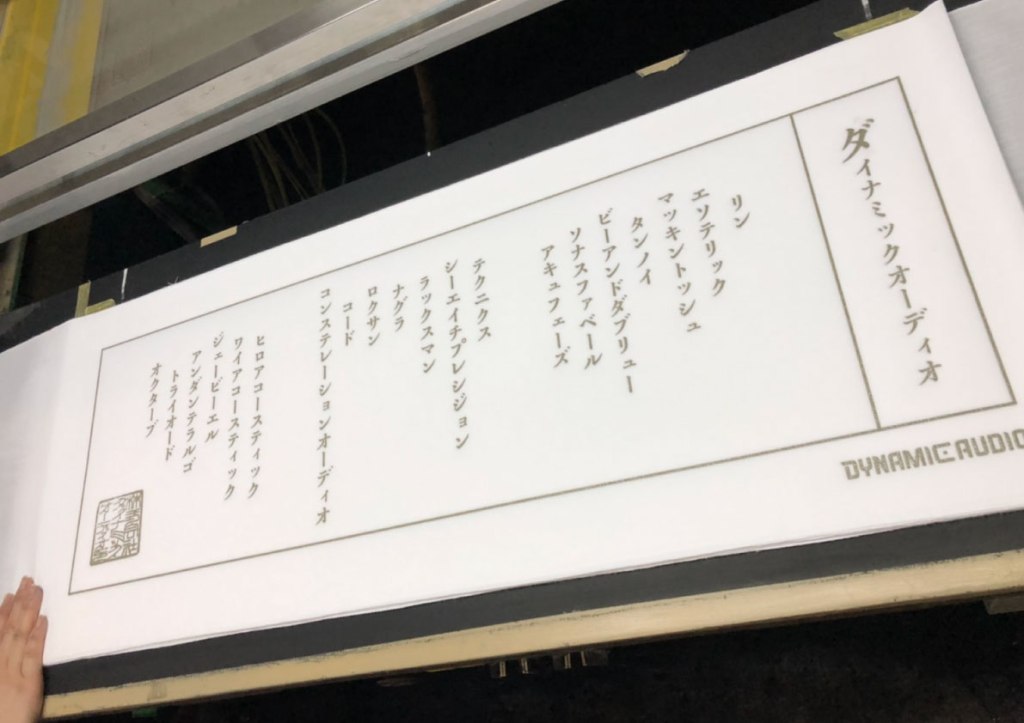 ダイナミックオーディオ
リン
エソテリック
マッキントッシュ
タンノイ
ビーアンドダブリュー
ソナスファベール
アキュフェーズ
テクニクス
シーエイチプレシジョン
ラックスマン
ナグラ
ロクサン
コード
コンステレーションオーディオ
ヒロアコースティック
ワイアコースティック
ジェービーエル
アンダンテラルゴ
トライオード
オクターブ
DYNAMIC AUDIO